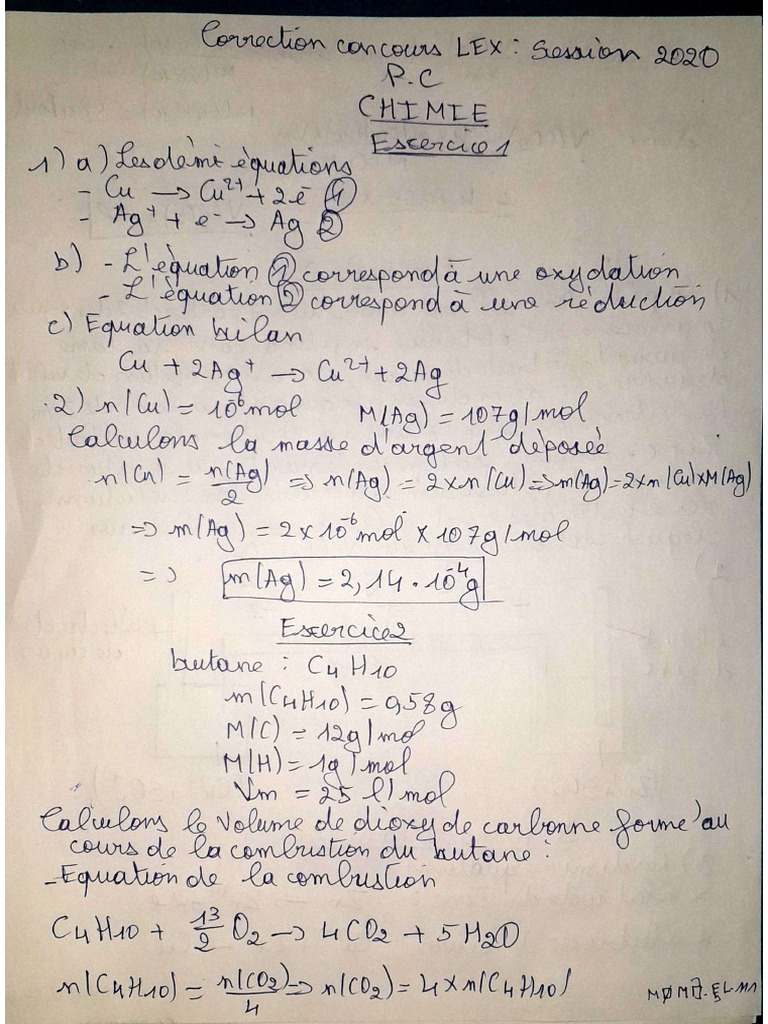 Correction concours LEX : Session 2020
P.C
CHIMIE
Exercice 1
1) a) Les demi équations
- Cu → Cu²⁺ + 2e⁻ ①
- Ag⁺ + e⁻ → Ag ②
b) - L'équation ① correspond à une oxydation
- L'équation ② correspond à une réduction
c) Equation bilan
Cu + 2Ag⁺ → Cu²⁺ + 2Ag
2) n(Cu) = 10⁻⁶ mol M(Ag) = 107g/mol
Calculons la masse d'argent déposée
n(Cu) = n(Ag)/2 => n(Ag) = 2×n(Cu) => m(Ag) = 2×n(Cu)×M(Ag)
=> m(Ag) = 2×10⁻⁶ mol × 107g/mol
=> m(Ag) = 2,14 · 10⁻⁴g
Exercice 2
butane : C4H10
m(C4H10) = 0,58g
M(C) = 12g/mol
M(H) = 1g/mol
Vm = 25 l/mol
Calculons le volume de dioxyde carbonne formé au
cours de la combustion du butane :
- Equation de la combustion
C4H10 + 13/2 O2 → 4CO2 + 5H2O
n(C4H10) = n(CO2)/4 => n(CO2) = 4×n(C4H10)